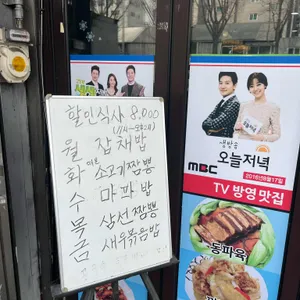 할인식사 8,000
월 잡채밥
화 소고기짬뽕
수 마파밥
목 삼선짬뽕
금 새우볶음밥
생방송
오늘저녁
MBC
2016년8월17일
TV 방영맛집
동파육